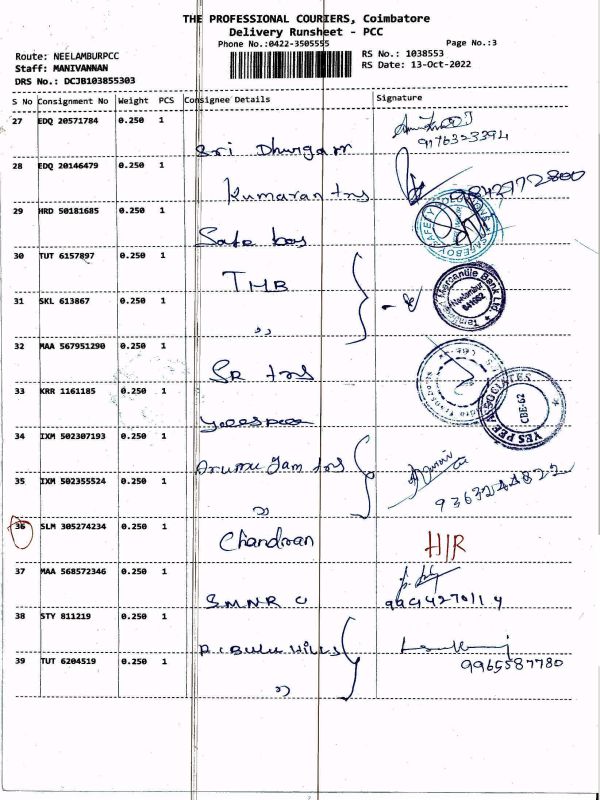 THE PROFESSIONAL COURIERS, Coimbatore
Delivery Runsheet - PCC
Phone No.:0422-3505555
Page No.:3
Route: NEELAMBURPCC
RS No.: 1038553
Staff: MANIVANNAN
RS Date: 13-Oct-2022
DRS No.: DCJB103855303
S No Consignment No Weight PCS Consignee Details Signature
27 EDQ 20571784 0.250 1 Sri Dhurgam 9176323394
28 EDQ 20146479 0.250 1 Kumaran tns
29 HRD 50181685 0.250 1 Safe boy
30 TUT 6157897 0.250 1 TMB
Tamilnad Mercantile Bank Ltd.
Neelambur
641062
31 SKL 613867 0.250 1 "
32 MAA 567951290 0.250 1 SR tns
33 KRR 1161185 0.250 1 yeespee
YES PEE ASSOCIATES
CBE-62
34 IXM 502307193 0.250 1 Arumugam tns
35 IXM 502355524 0.250 1 "
36 SLM 305274234 0.250 1 Chandran H/R
37 MAA 568572346 0.250 1 SMNR C
38 STY 811219 0.250 1 HILLS
39 TUT 6204519 0.250 1 "
9965587780